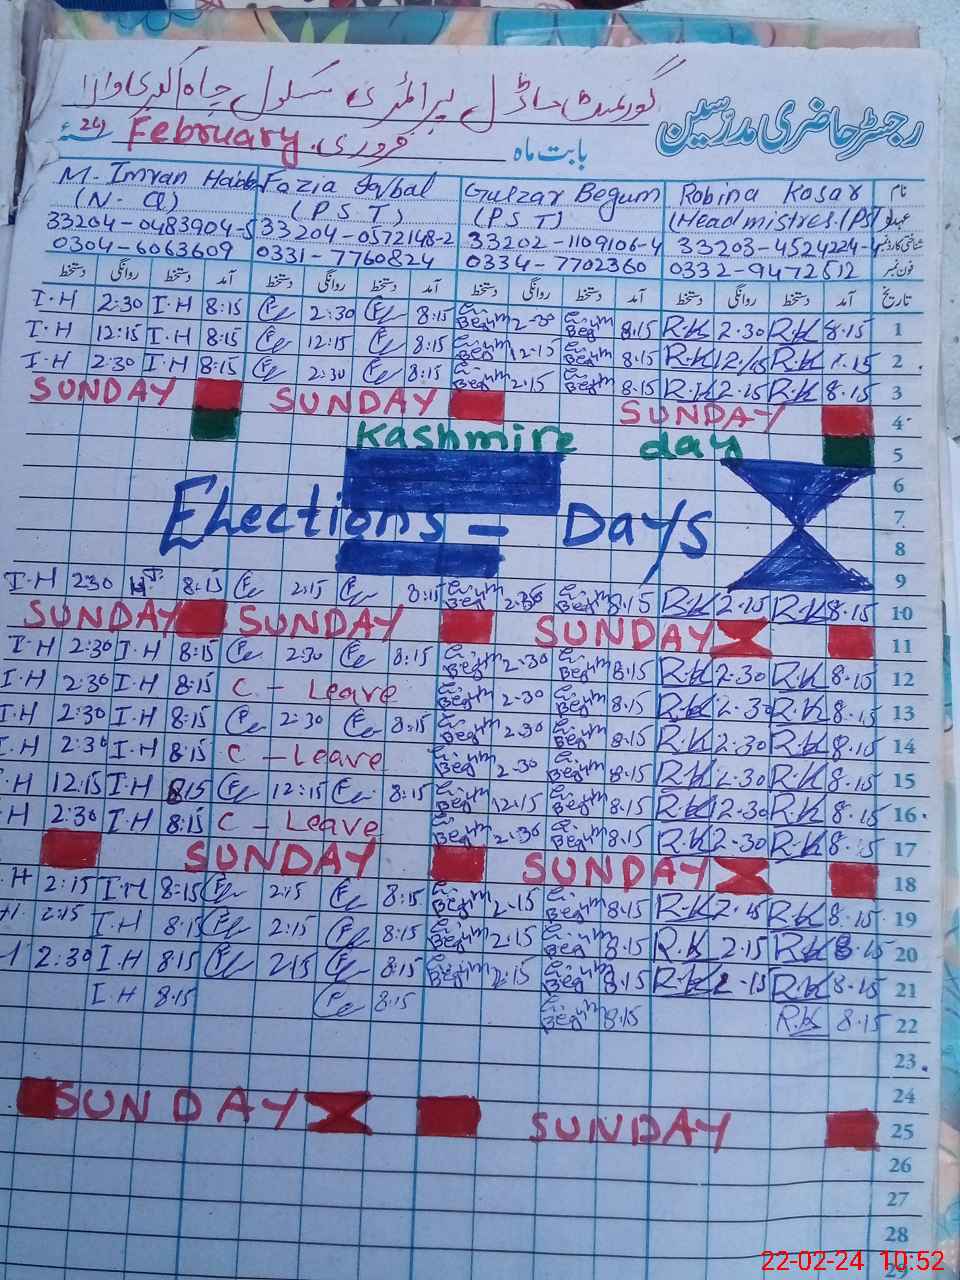 رجسٹر حاضری مدرسین
گورنمنٹ ماڈل پرائمری سکول چاہ
بابت ماہ فروری February 24ء
نام Robina Kosar Gulzar Begum Fozia Iqbal M. Imran Habib
عہدہ (Headmistres/PST) (PST) (PST) (N-Q)
شناختی کارڈ نمبر 33203-4524224- 33202-1109106-4 33204-0572148-2 33204-0483904-5
فون نمبر 0332-9472512 0334-7702360 0331-7760824 0304-6063609
تاریخ آمد دستخط روانگی دستخط آمد دستخط روانگی دستخط آمد دستخط روانگی دستخط آمد دستخط روانگی دستخط
I.H 2:30 I.H 8:15 2:30 8:15 Begum 2:30 Begum 8:15 R.K 2.30 R.K 8.15 1
I.H 12:15 I.H 8:15 12:15 8:15 Beg 12.15 Beg 8.15 R.K 12.15 R.K 8.15 2
I.H 2:30 I.H 8:15 2:30 8:15 Begum 2.15 Begum 8.15 R.K 2.15 R.K 8.15 3
SUNDAY SUNDAY SUNDAY 4
Kashmire day 5
6
Elections - Days 7
8
9
I.H 2:30 8:15 2:15 8:15 Begum Begum 8.15 R.K 2.15 R.K 8.15 10
SUNDAY SUNDAY SUNDAY 11
I.H 2:30 I.H 8:15 2:30 8:15 Begum 2.30 Begum 8.15 R.K 2.30 R.K 8.15 12
I.H 2:30 I.H 8:15 C - Leave Begum 2.30 Begum 8.15 R.K 2.30 R.K 8.15 13
I.H 2:30 I.H 8:15 2:30 8:15 Begum 2.30 Begum 8.15 R.K 2.30 R.K 8.15 14
I.H 2:30 I.H 8:15 C - Leave Begum 2.30 Begum 8.15 R.K 2.30 R.K 8.15 15
.H 12:15 I.H 8:15 12:15 8:15 Begum 12.15 Begum 8.15 R.K 12.30 R.K 8.15 16
.H 2:30 I.H 8:15 C - Leave Begum 2.30 Begum 8.15 R.K 2.30 R.K 8.15 17
SUNDAY SUNDAY 18
.H 2:15 I.H 8:15 2:15 8:15 Begum 2.15 Begum 8.15 R.K 2.15 R.K 8.15 19
2:15 I.H 8:15 2:15 8:15 Begum 2.15 Begum 8.15 R.K 2.15 R.K 8.15 20
2:30 I.H 8:15 2:15 8:15 Begum 2.15 Begum 8.15 R.K 2.15 R.K 8.15 21
I.H 8:15 8:15 Begum 8.15 R.K 8.15 22
23
24
SUNDAY SUNDAY 25
26
27
28
29
22-02-24 10:52